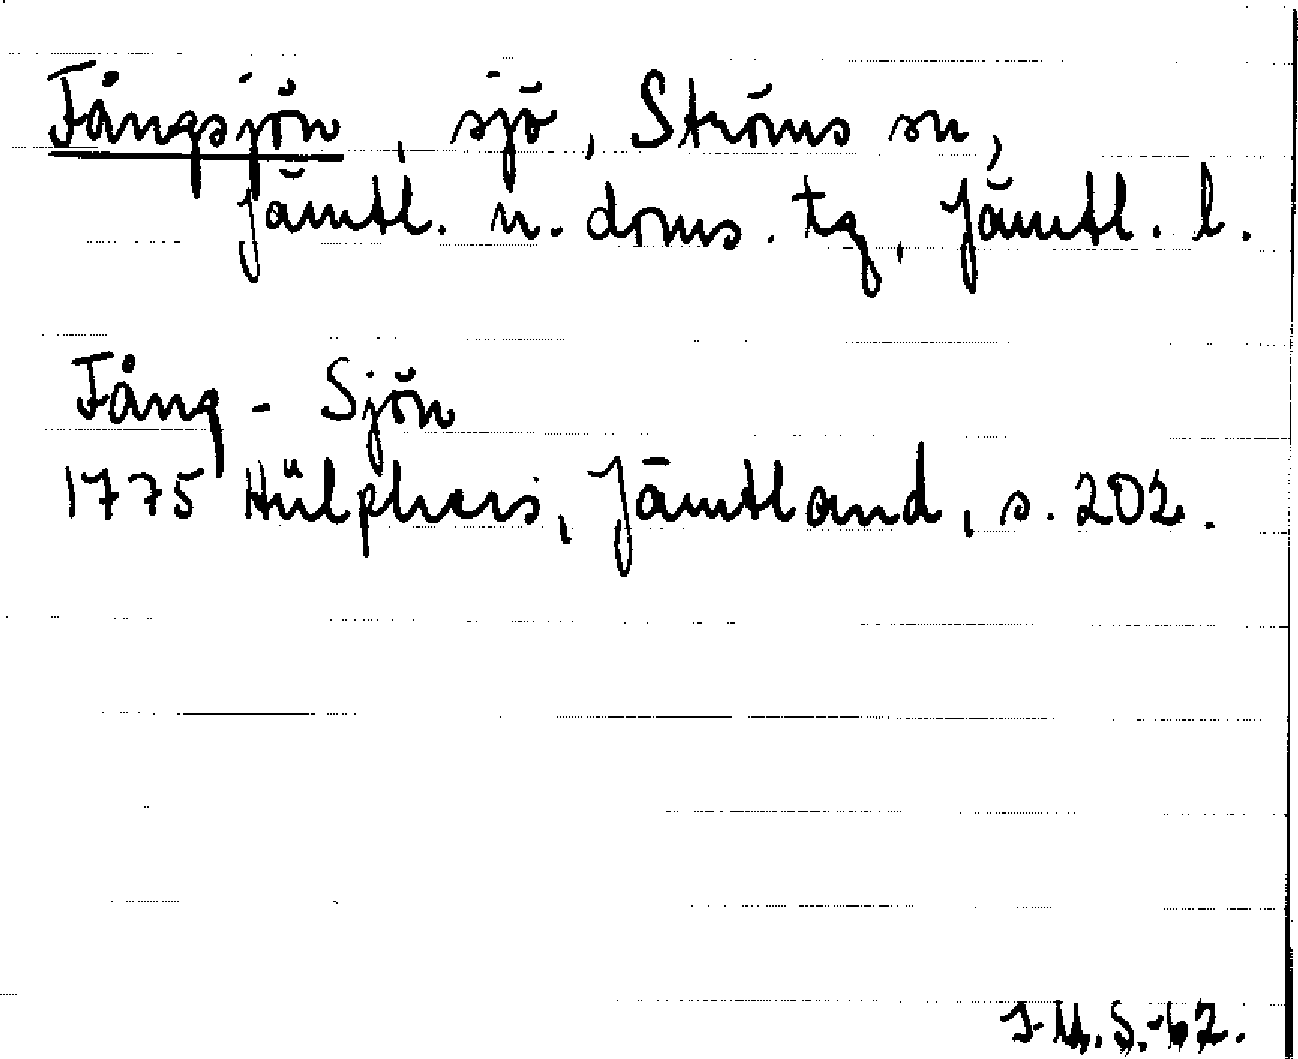 Fångsjön, sjö, Ströms sn,
Jämtl. n. doms. tg, Jämtl. l.
Fång - Sjön
1775 Hülphers, Jämtland, s. 202.
I-M.S.-62.